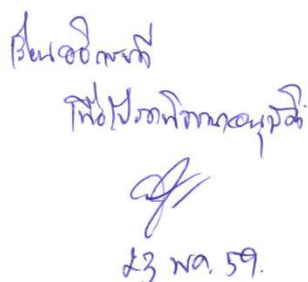 เรียนอธิการบดี
เพื่อโปรดพิจารณาอนุมัติ
23 พค. 59.